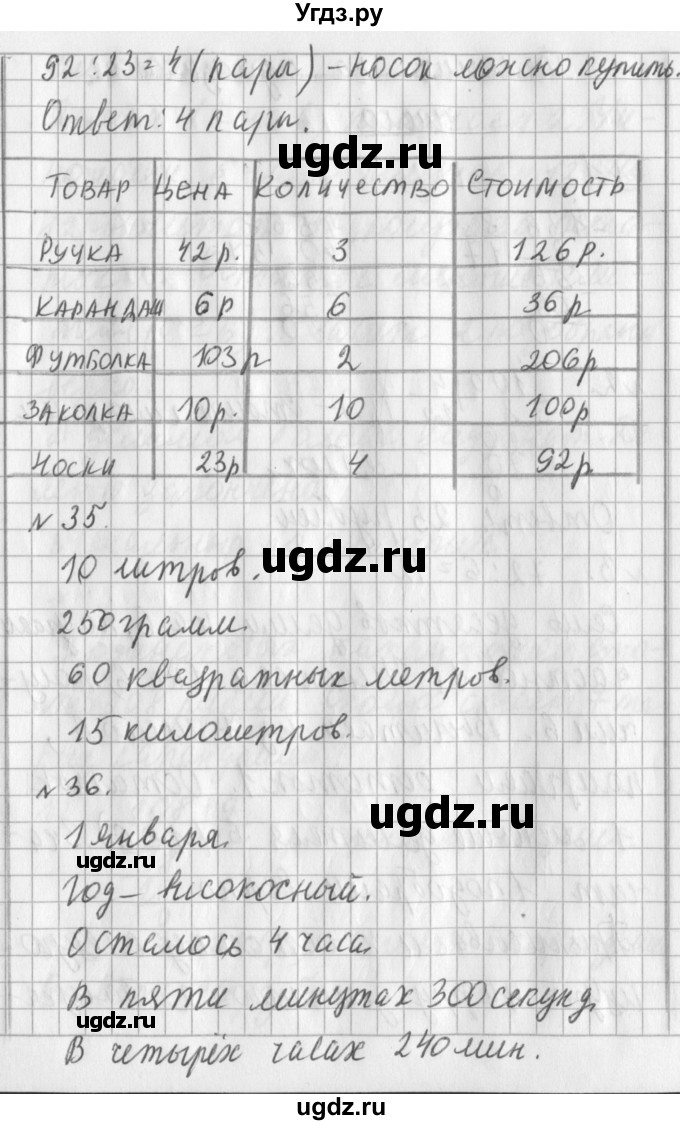 Угдз.ру
92:23=4(пары)-носок можно купить.
Ответ: 4 пары.
ugdz.ru
ТОВАР ЦЕНА КОЛИЧЕСТВО СТОИМОСТЬ
РУЧКА 42р. 3 126р.
КАРАНДАШ 6р 6 36р
ФУТБОЛКА 103р 2 206р
ЗАКОЛКА 10р. 10 100р
НОСКИ 23р 4 92р
№35.
10 литров.
ugdz.ru
250грамм.
60 квадратных метров.
15 километров.
№36.
ugdz.ru
1 января.
ugdz.ru
Год-високосный.
Осталось 4 часа.
В пяти минутах 300секунд.
ugdz.ru
В четырёх часах 240мин.
ugdz.ru